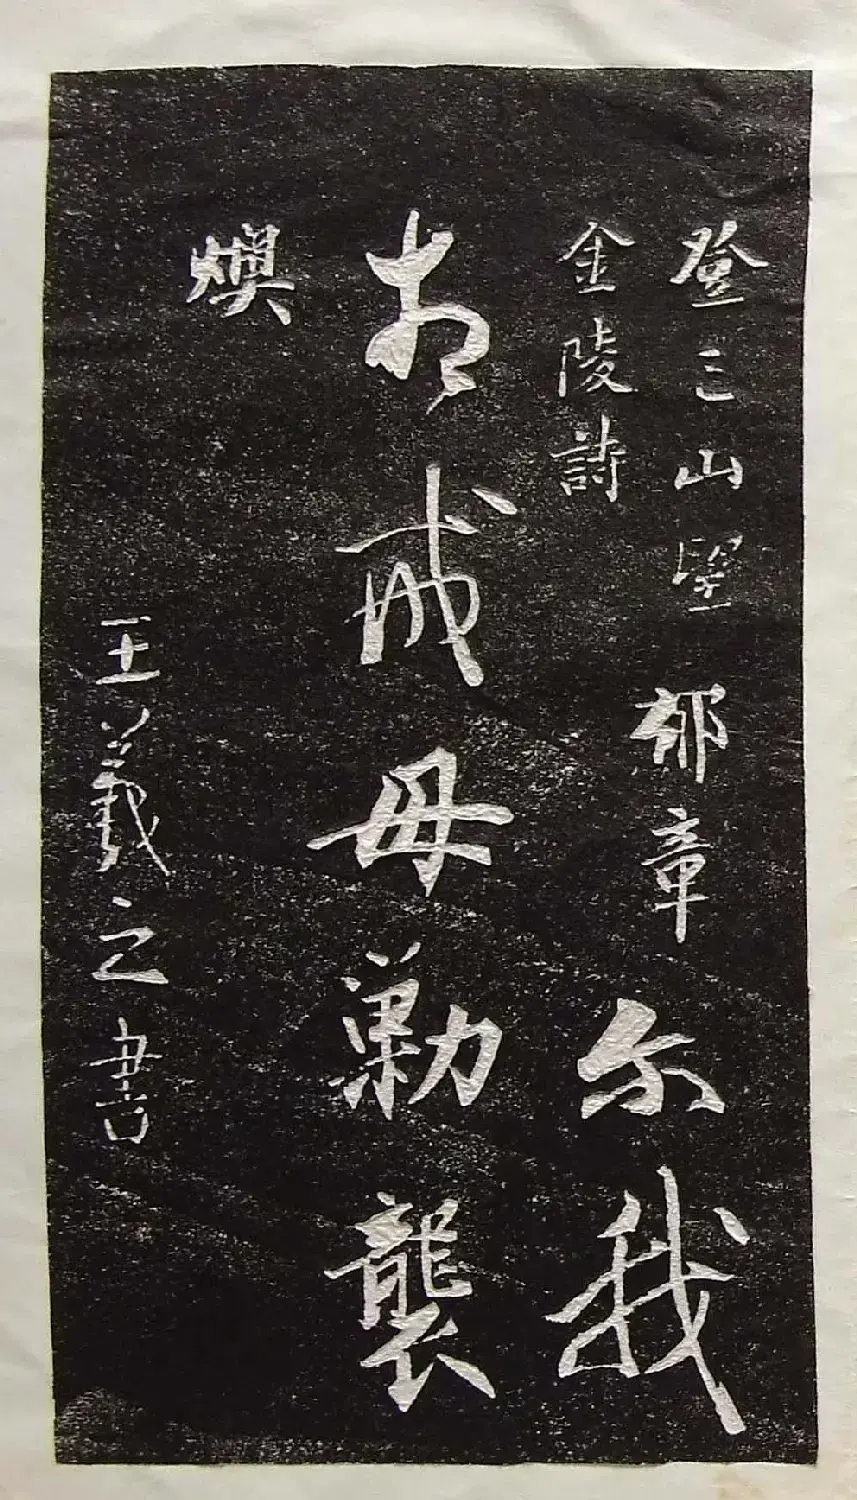 登三山望 郁章
金陵詩 尔我
相戒毋勦襲
煥
王羲之書